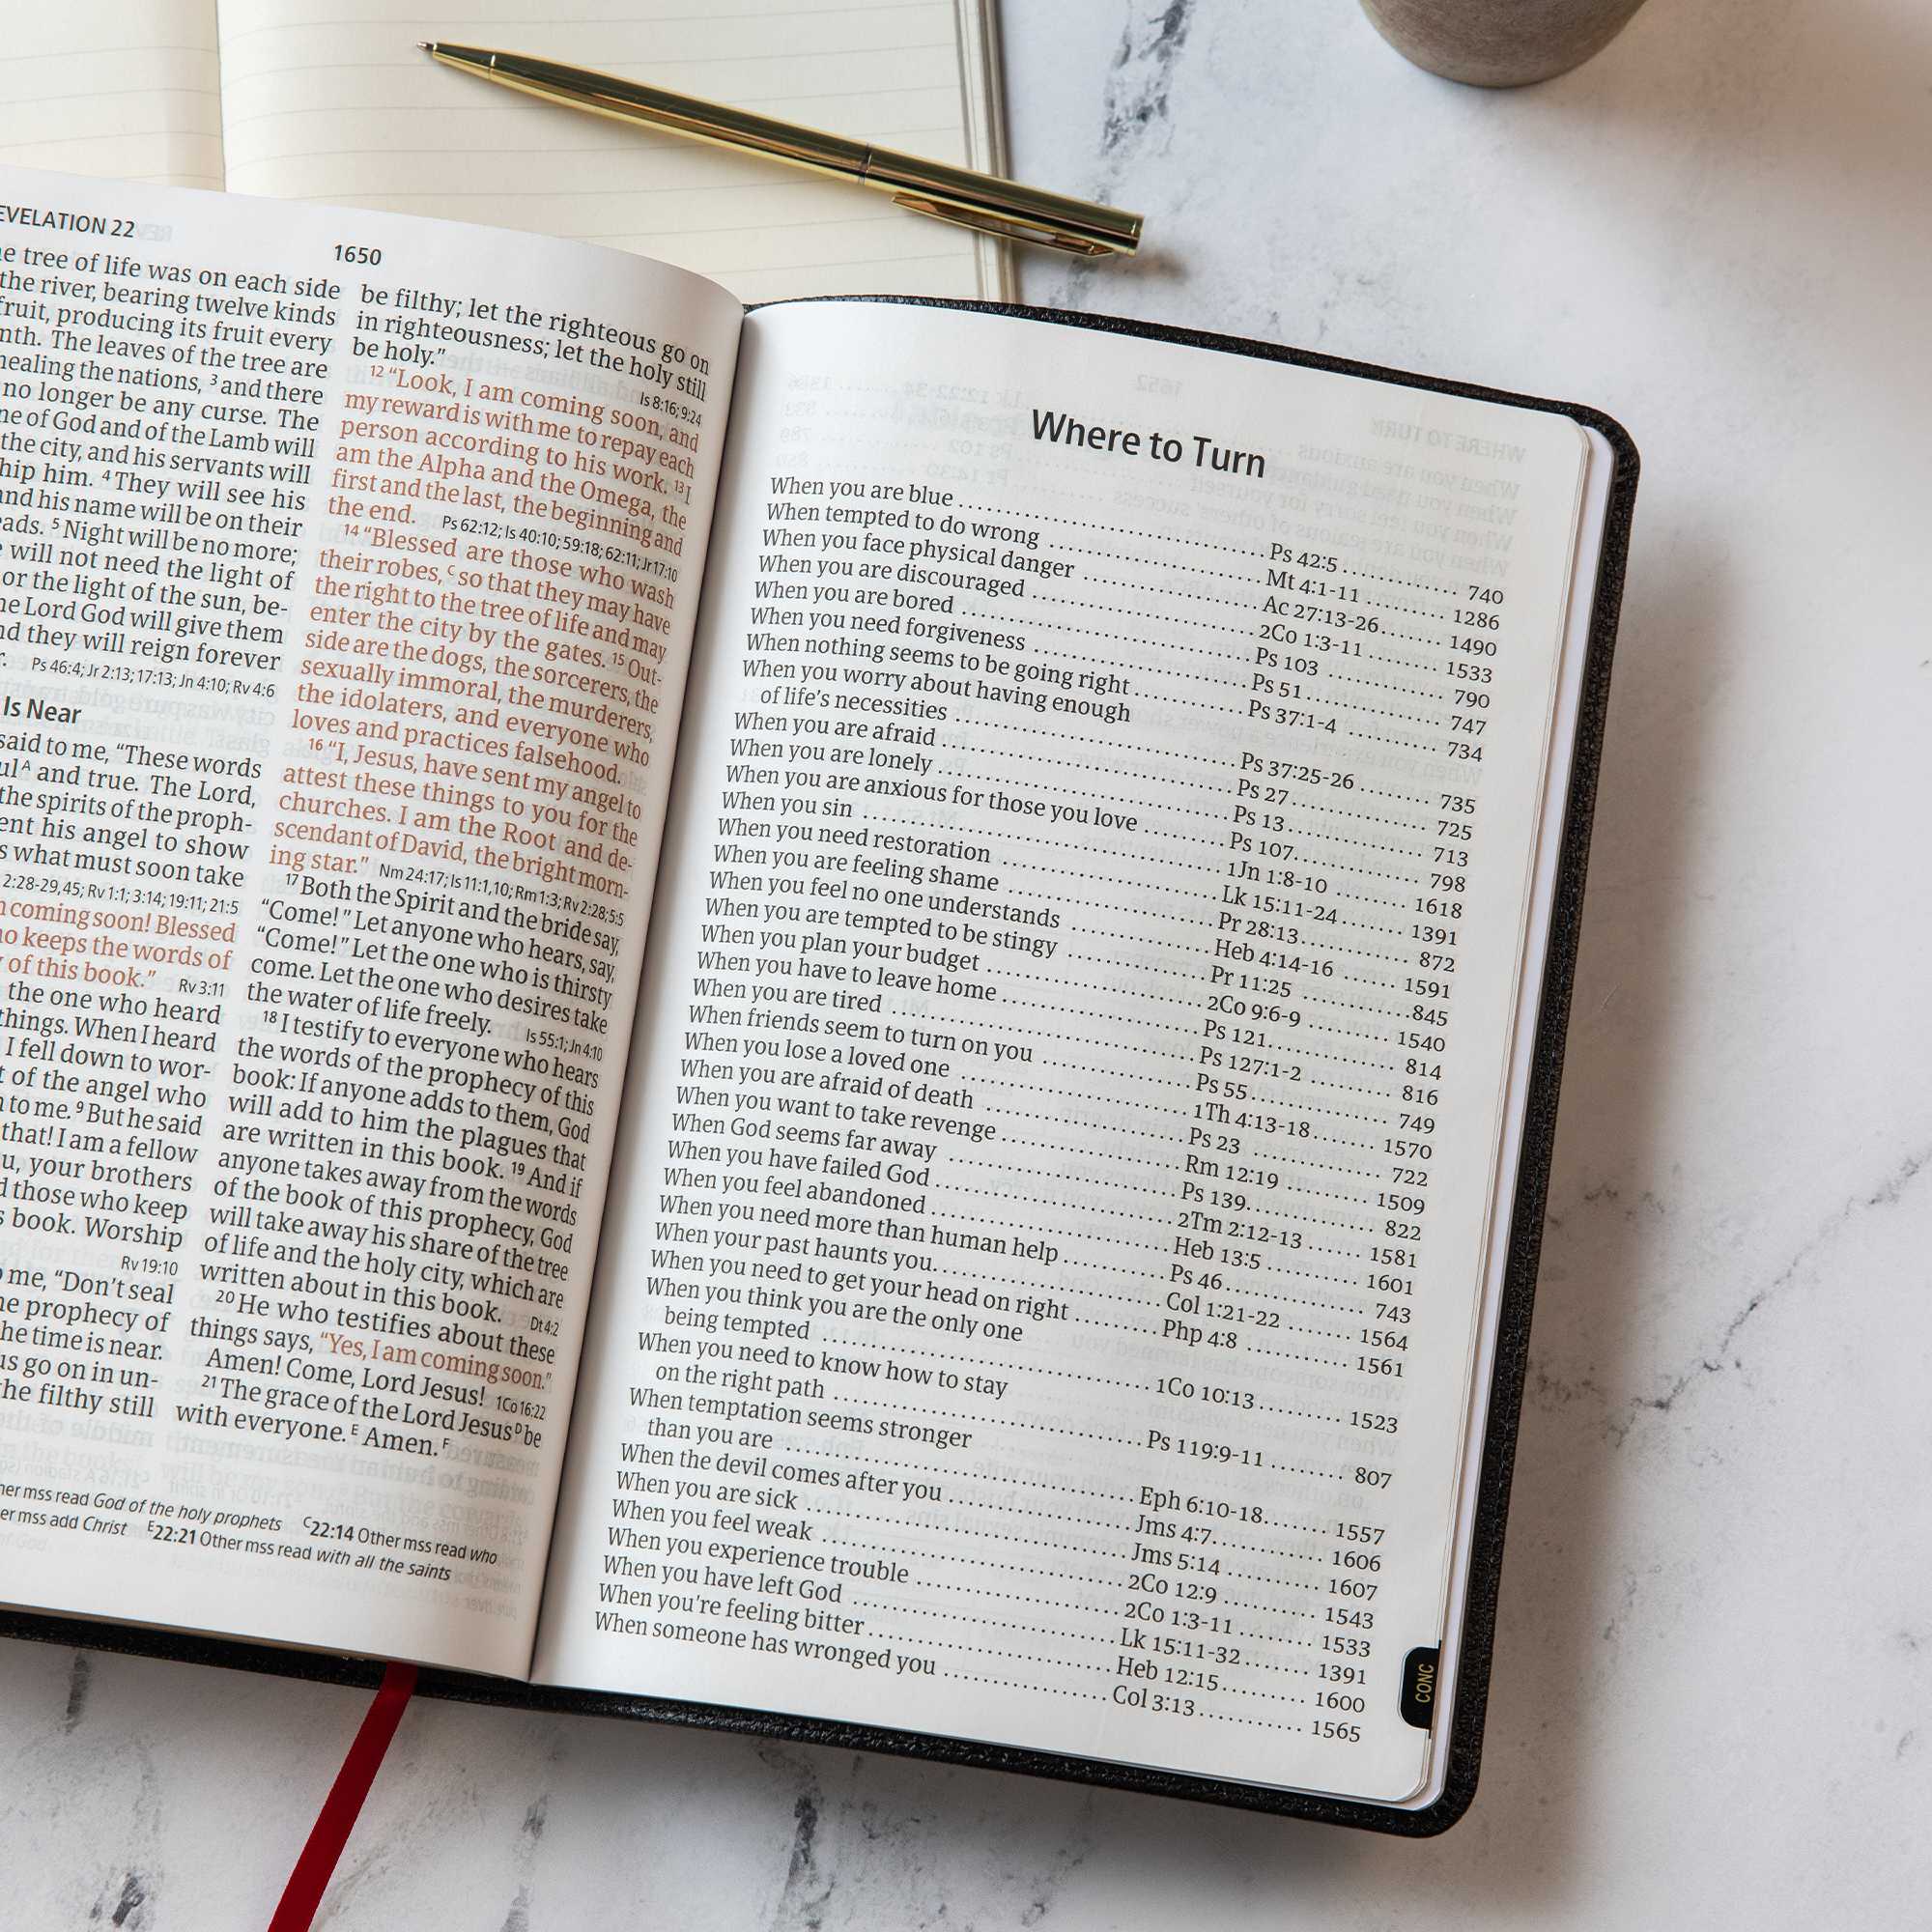 EVELATION 22
1650
e tree of life was on each side
the river, bearing twelve kinds
fruit, producing its fruit every
nth. The leaves of the tree are
healing the nations, 3 and there
no longer be any curse. The
ne of God and of the Lamb will
the city, and his servants will
hip him. 4 They will see his
and his name will be on their
eads. 5 Night will be no more;
will not need the light of
or the light of the sun, be-
ne Lord God will give them
nd they will reign forever
r. Ps 46:4; Jr 2:13; 17:13; Jn 4:10; Rv 4:6
Is Near
said to me, “These words
ul A and true. The Lord,
the spirits of the proph-
ent his angel to show
s what must soon take
2:28-29,45; Rv 1:1; 3:14; 19:11; 21:5
coming soon! Blessed
ho keeps the words of
of this book.” Rv 3:11
the one who heard
things. When I heard
I fell down to wor-
t of the angel who
to me. 9 But he said
that! I am a fellow
u, your brothers
d those who keep
s book. Worship
Rv 19:10
me, “Don’t seal
he prophecy of
he time is near.
us go on in un-
he filthy still
be filthy; let the righteous go on
in righteousness; let the holy still
be holy.” Is 8:16; 9:24
12 “Look, I am coming soon, and
my reward is with me to repay each
person according to his work. 13 I
am the Alpha and the Omega, the
first and the last, the beginning and
the end. Ps 62:12; Is 40:10; 59:18; 62:11; Jr 17:10
14 “Blessed are those who wash
their robes, C so that they may have
the right to the tree of life and may
enter the city by the gates. 15 Out-
side are the dogs, the sorcerers, the
sexually immoral, the murderers,
the idolaters, and everyone who
loves and practices falsehood.
16 “I, Jesus, have sent my angel to
attest these things to you for the
churches. I am the Root and de-
scendant of David, the bright morn-
ing star.” Nm 24:17; Is 11:1,10; Rm 1:3; Rv 2:28; 5:5
17 Both the Spirit and the bride say,
“Come!” Let anyone who hears, say,
“Come!” Let the one who is thirsty
come. Let the one who desires take
the water of life freely. Is 55:1; Jn 4:10
18 I testify to everyone who hears
the words of the prophecy of this
book: If anyone adds to them, God
will add to him the plagues that
are written in this book. 19 And if
anyone takes away from the words
of the book of this prophecy, God
will take away his share of the tree
of life and the holy city, which are
written about in this book. Dt 4:2
20 He who testifies about these
things says, “Yes, I am coming soon.”
Amen! Come, Lord Jesus! 1Co 16:22
21 The grace of the Lord Jesus D be
with everyone. E Amen. F
her mss read God of the holy prophets C22:14 Other mss read who
er mss add Christ E22:21 Other mss read with all the saints
Where to Turn
When you are blue ........ Ps 42:5 ........ 740
When tempted to do wrong ........ Mt 4:1-11 ........ 1286
When you face physical danger ........ Ac 27:13-26 ........ 1490
When you are discouraged ........ 2Co 1:3-11 ........ 1533
When you are bored ........ Ps 103 ........ 790
When you need forgiveness ........ Ps 51 ........ 747
When nothing seems to be going right ........ Ps 37:1-4 ........ 734
When you worry about having enough
of life’s necessities ........ Ps 37:25-26 ........ 735
When you are afraid ........ Ps 27 ........ 725
When you are lonely ........ Ps 13 ........ 713
When you are anxious for those you love ........ Ps 107 ........ 798
When you sin ........ 1Jn 1:8-10 ........ 1618
When you need restoration ........ Lk 15:11-24 ........ 1391
When you are feeling shame ........ Pr 28:13 ........ 872
When you feel no one understands ........ Heb 4:14-16 ........ 1591
When you are tempted to be stingy ........ Pr 11:25 ........ 845
When you plan your budget ........ 2Co 9:6-9 ........ 1540
When you have to leave home ........ Ps 121 ........ 814
When you are tired ........ Ps 127:1-2 ........ 816
When friends seem to turn on you ........ Ps 55 ........ 749
When you lose a loved one ........ 1Th 4:13-18 ........ 1570
When you are afraid of death ........ Ps 23 ........ 722
When you want to take revenge ........ Rm 12:19 ........ 1509
When God seems far away ........ Ps 139 ........ 822
When you have failed God ........ 2Tm 2:12-13 ........ 1581
When you feel abandoned ........ Heb 13:5 ........ 1601
When you need more than human help ........ Ps 46 ........ 743
When your past haunts you ........ Col 1:21-22 ........ 1564
When you need to get your head on right ........ Php 4:8 ........ 1561
When you think you are the only one
being tempted ........ 1Co 10:13 ........ 1523
When you need to know how to stay
on the right path ........ Ps 119:9-11 ........ 807
When temptation seems stronger
than you are ........ Eph 6:10-18 ........ 1557
When the devil comes after you ........ Jms 4:7 ........ 1606
When you are sick ........ Jms 5:14 ........ 1607
When you feel weak ........ 2Co 12:9 ........ 1543
When you experience trouble ........ 2Co 1:3-11 ........ 1533
When you have left God ........ Lk 15:11-32 ........ 1391
When you’re feeling bitter ........ Heb 12:15 ........ 1600
When someone has wronged you ........ Col 3:13 ........ 1565
CONC